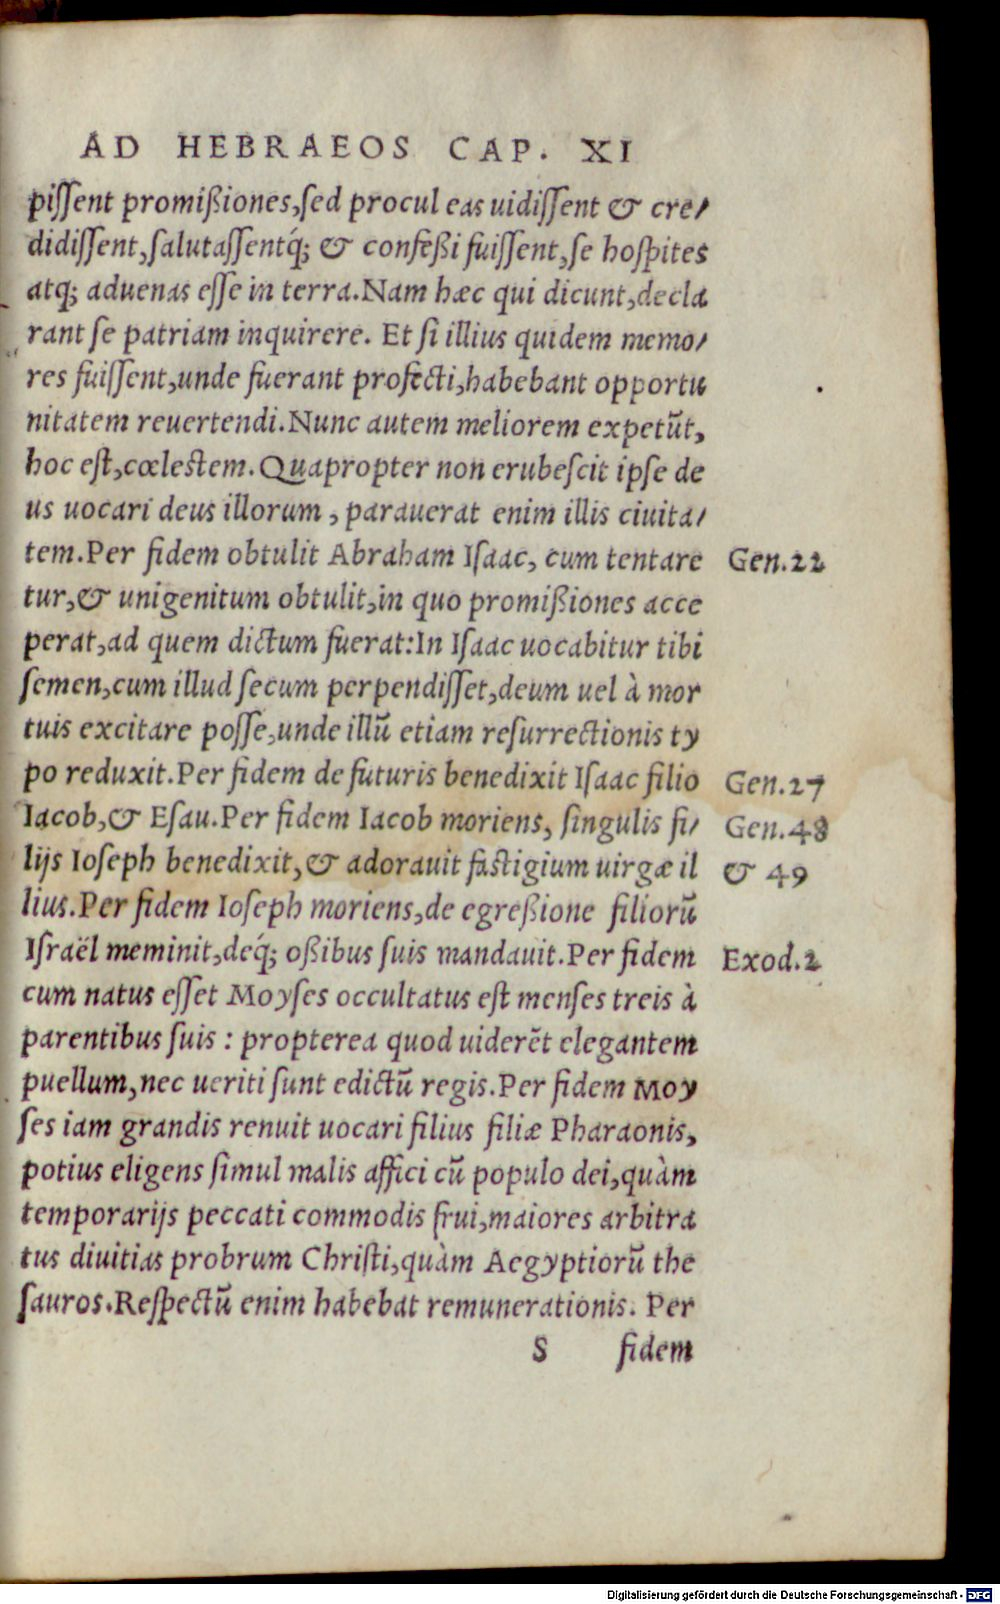 AD HEBRAEOS CAP. XI
piſſent promißiones,ſed procul eas uidiſſent & cre/
didiſſent,ſalutaſſentq́; & confeßi fuiſſent,ſe hoſpites
atq; aduenas eſſe in terra.Nam hæc qui dicunt,decla
rant ſe patriam inquirere. Et ſi illius quidem memo/
res fuiſſent,unde fuerant profecti,habebant opportu
nitatem reuertendi.Nunc autem meliorem expetũt,
hoc eſt,cœleſtem.Quapropter non erubeſcit ipſe de
us uocari deus illorum , parauerat enim illis ciuita/
tem.Per fidem obtulit Abraham Iſaac, cum tentare
Gen.22
tur,& unigenitum obtulit,in quo promißiones acce
perat,ad quem dictum fuerat:In Iſaac uocabitur tibi
ſemen,cum illud ſecum perpendiſſet,deum uel à mor
tuis excitare poſſe,unde illũ etiam reſurrectionis ty
po reduxit.Per fidem de futuris benedixit Iſaac filio
Gen.27
Iacob,& Eſau.Per fidem Iacob moriens, ſingulis fi/
Gen.48
lijs Ioſeph benedixit,& adorauit faſtigium uirgæ il
& 49
lius.Per fidem Ioſeph moriens,de egreßione filiorũ
Iſraël meminit,deq́; oßibus ſuis mandauit.Per fidem
Exod.2
cum natus eſſet Moyſes occultatus eſt menſes treis à
parentibus ſuis : propterea quod uiderẽt elegantem
puellum,nec ueriti ſunt edictũ regis.Per fidem Moy
ſes iam grandis renuit uocari filius filiæ Pharaonis,
potius eligens ſimul malis affici cũ populo dei,quàm
temporarijs peccati commodis frui,maiores arbitra
tus diuitias probrum Chriſti,quàm Aegyptiorũ the
ſauros.Reſpectũ enim habebat remunerationis. Per
S fidem
Digitalisierung gefördert durch die Deutsche Forschungsgemeinschaft - DFG